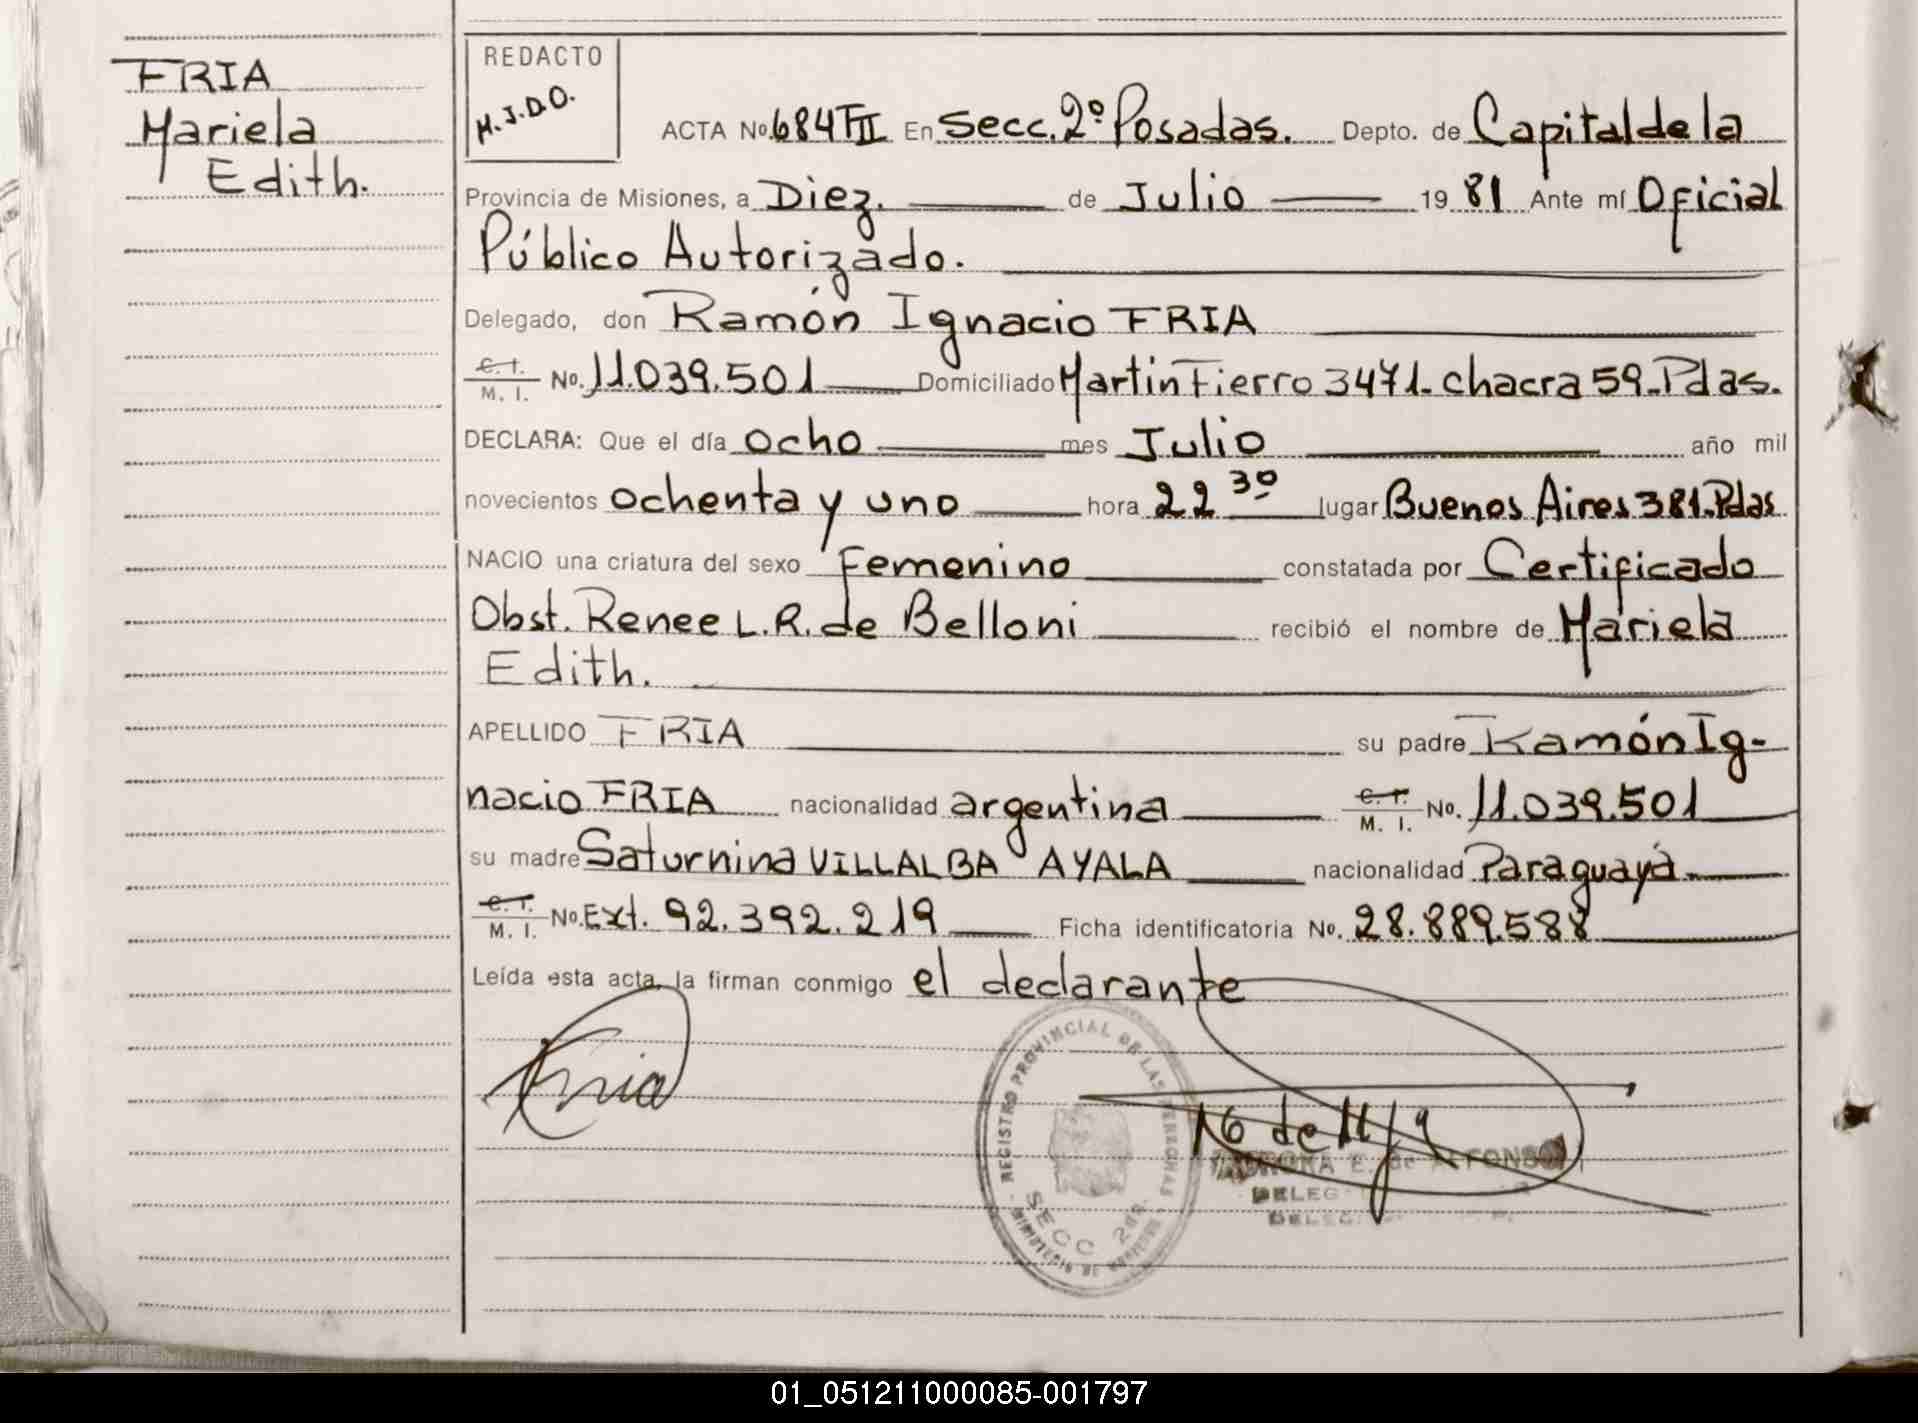 FRIA
Mariela
Edith.
REDACTO
M.J.D.O.
ACTA No. 684 T II En Secc. 2º Posadas. Depto. de Capital de la
Provincia de Misiones, a Diez. de Julio 19 81 Ante mí Oficial
Público Autorizado.
Delegado, don Ramón Ignacio FRIA
C. I. M. I. No. 11.039.501 Domiciliado Martin Fierro 3471- chacra 59-Pdas.
DECLARA: Que el día ocho mes Julio año mil
novecientos ochenta y uno hora 22 30 lugar Buenos Aires 381-Pdas
NACIO una criatura del sexo Femenino constatada por Certificado
Obst. Renee L.R. de Belloni recibió el nombre de Mariela
Edith.
APELLIDO FRIA su padre Ramón Ig-
nacio FRIA nacionalidad argentina C. I. M. I. No. 11.039.501
su madre Saturnina VILLALBA AYALA nacionalidad Paraguaya
C. I. M. I. No. Ext. 92.392.219 Ficha identificatoria No. 28.889.588
Leída esta acta, la firman conmigo el declarante
Fria
REGISTRO PROVINCIAL DE LAS PERSONAS
SECC 2da
E. de ALFONSO
01_051211000085-001797